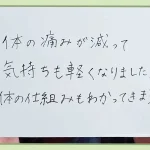 体の痛みが減って
気持ちも軽くなりました
体の仕組みもわかってきま